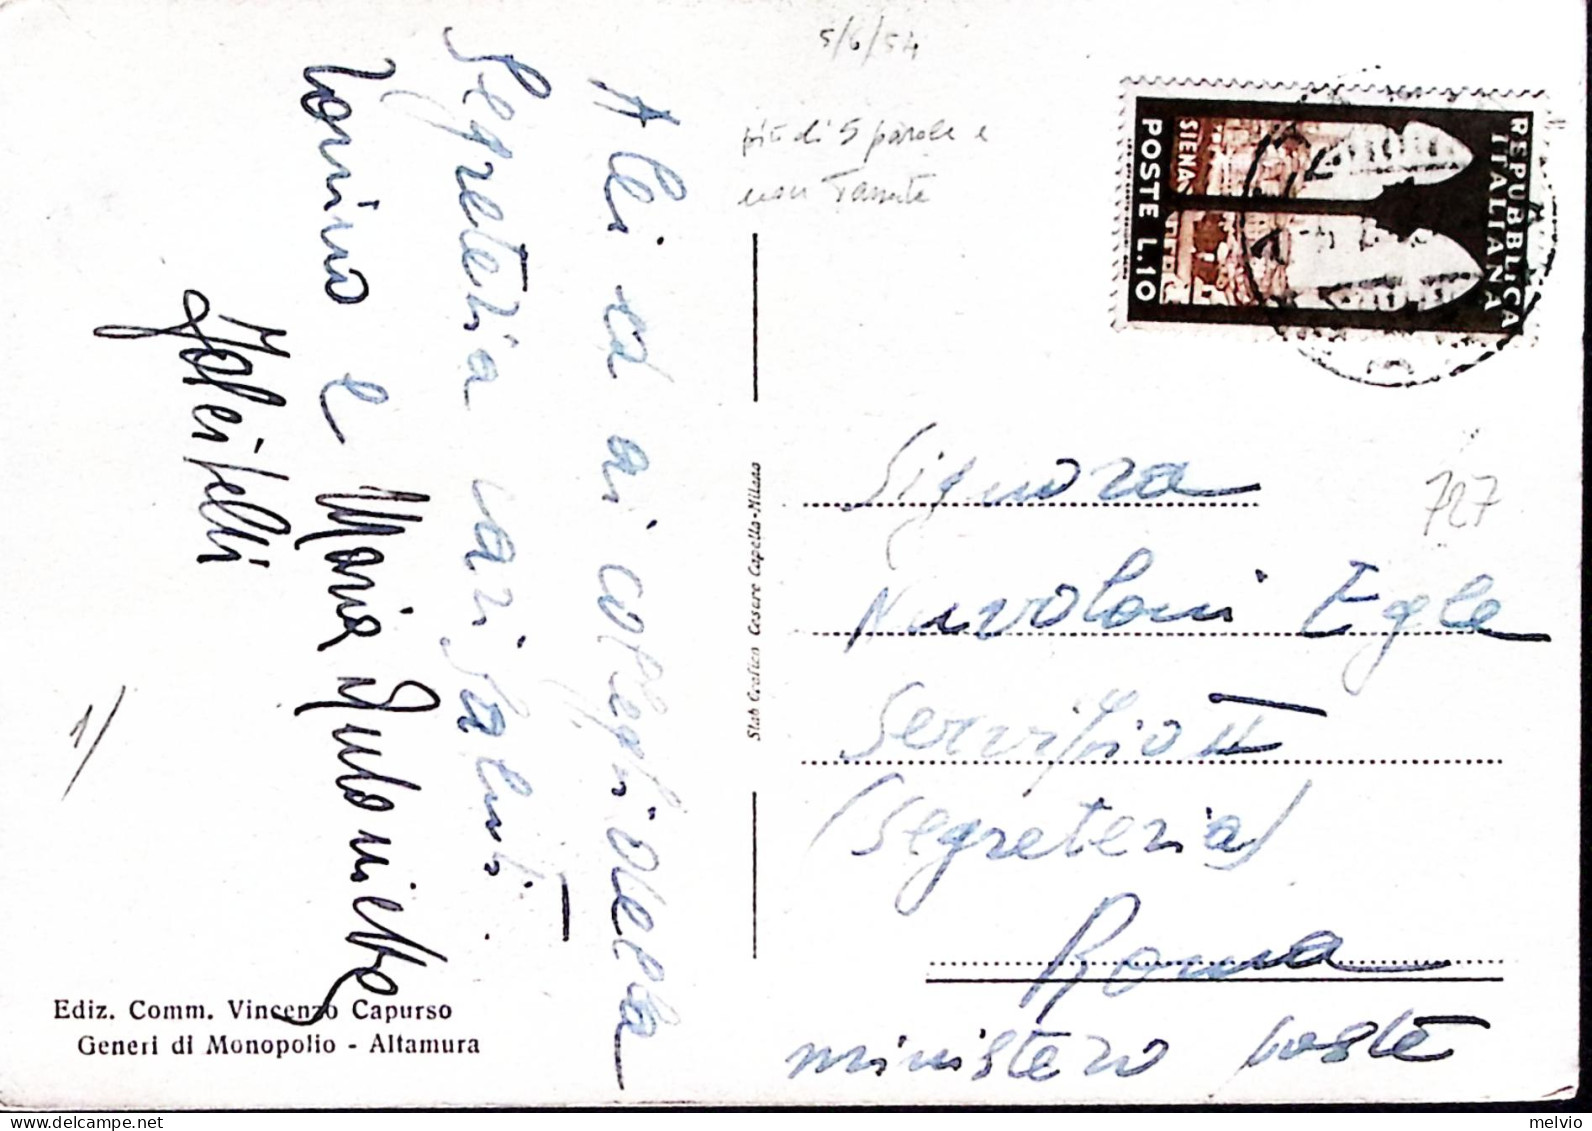 5/6/54
più di 5 parole e
non Tassata
REPUBBLICA
ITALIANA
SIENA
POSTE L.10
A lei ed ai colleghi della
Segreteria cari saluti.
Tonino e Maria Antonietta
1/
Signora
727
Nuvoloni Egle
Servizio II
(Segreteria)
Roma
ministero poste
Stab Grafico Cesare Capella-Milano
Ediz. Comm. Vincenzo Capurso
Generi di Monopolio - Altamura
melvio